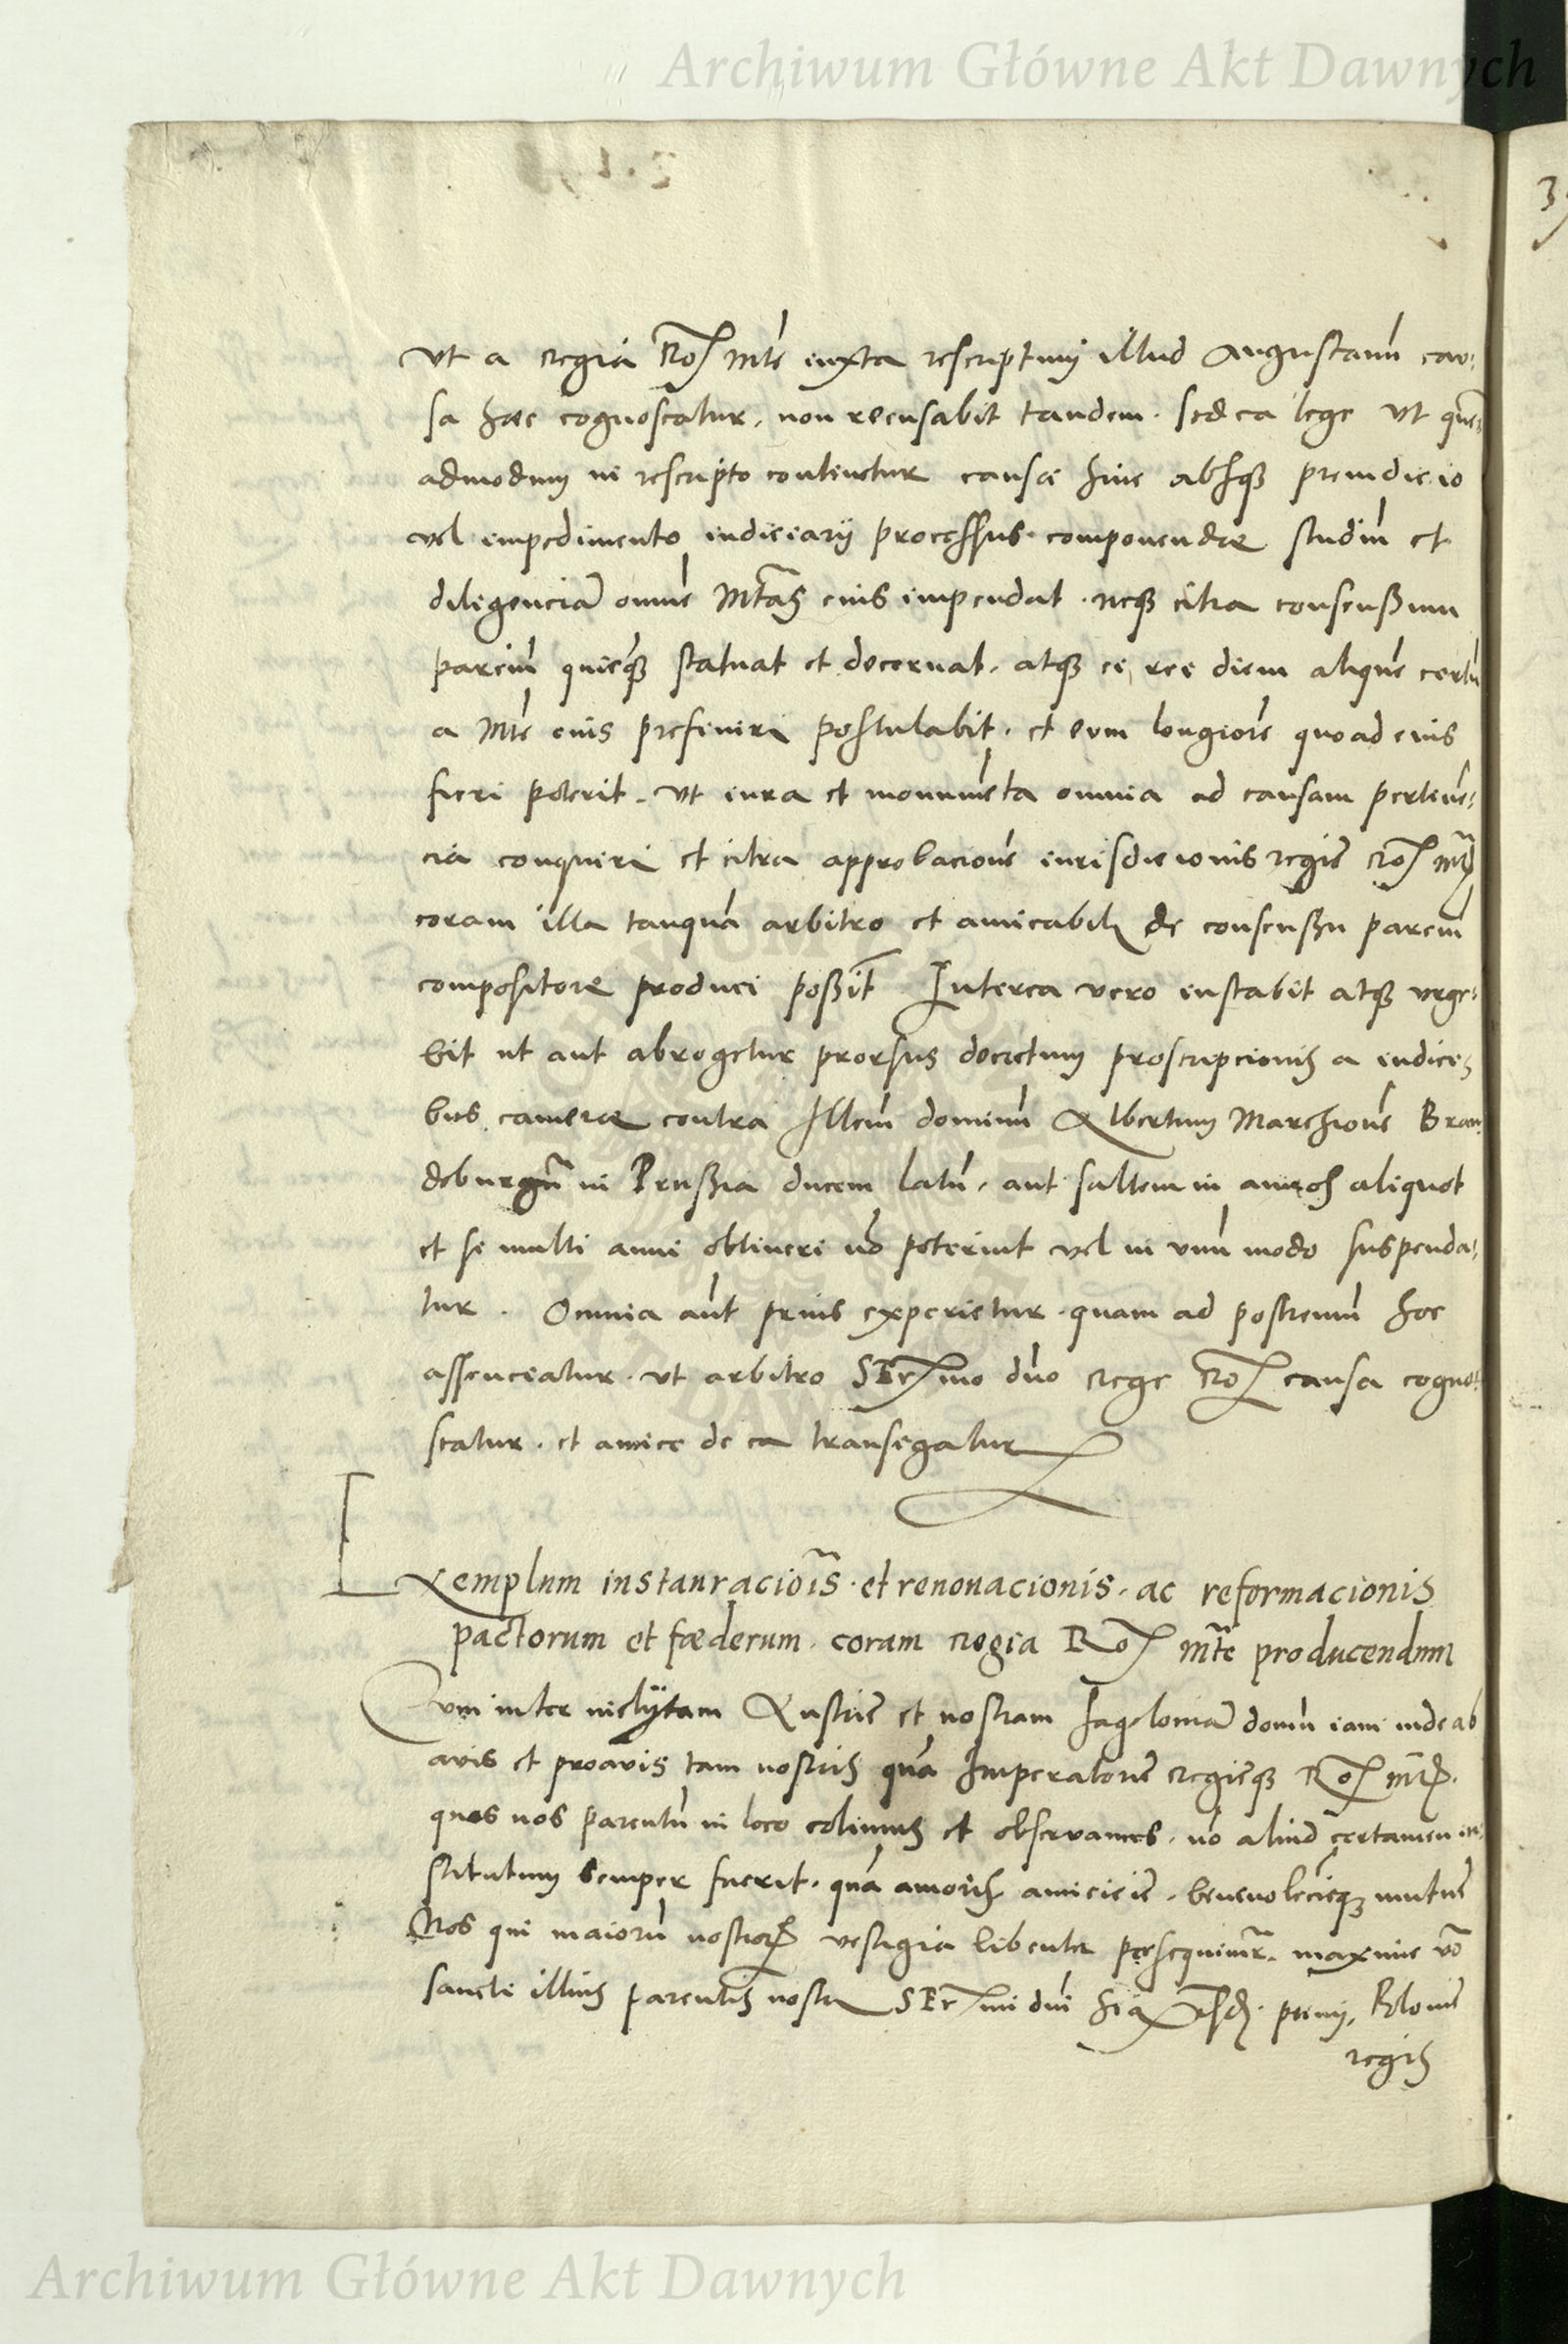 Archiwum Główne Akt Dawnych
Ut a regia Ro. mte iuxta rescriptum illud Augustanu cau-
sa haec cognoscatur, non recusabit tandem. sed ea lege ut que-
admodum in rescripto continetur causae huic absq preiudicio
vel impedimento iudiciarii processus componendae studiu et
diligencia omne Mtas eius impendat. neq citra consensum
parciu quicq statuat et decernat. atq ei rei diem alique certu
a Mte eius prefiniri postulabit. et eum longiore quoad eius
fieri poterit. ut iura et monumeta omnia ad causam pertine-
cia conquiri et citra approbacione iurisdicionis regie Ro. mtis
coram illa tanqua arbitro et amicabili de consensu parciu
compositore produci possit. Interea vero instabit atq urge-
bit ut aut abrogetur prorsus decretum proscripcionis a iudici-
bus camerae contra Illem dominu Albertum Marchione Bran
deburgn in Prussia ducem latu, aut saltem in annos aliquot
et si multi anni obtineri no poterint vel in unu modo suspenda-
tur. Omnia aut prius experietur. quam ad postremu hoc
assenciatur. ut arbitro SEr.mo dno rege Ro. causa cogno-
scatur. et amice de ea transigatur
Exemplum instauraciois. et renovacionis. ac reformacionis
pactorum et fœderum. coram regia Ro. mte producendum
Cum inter inclytam Austrie et nostram Jagelonia domu iam inde ab
avis et proavis tam nostris qua Imperatorie regieq Ro. mtis.
quos nos parentu in loco colimus et observamus. no aliud certamen in-
stitutum semper fuerit. qua amoris amicicie. benevolecieq mutue
Nos qui maioru nostror vestigia libenter persequimur. maxime vo
sancti illius parentis nostri SEr.mi dni Sig.di. primi, Polonie
regis
Archiwum Główne Akt Dawnych